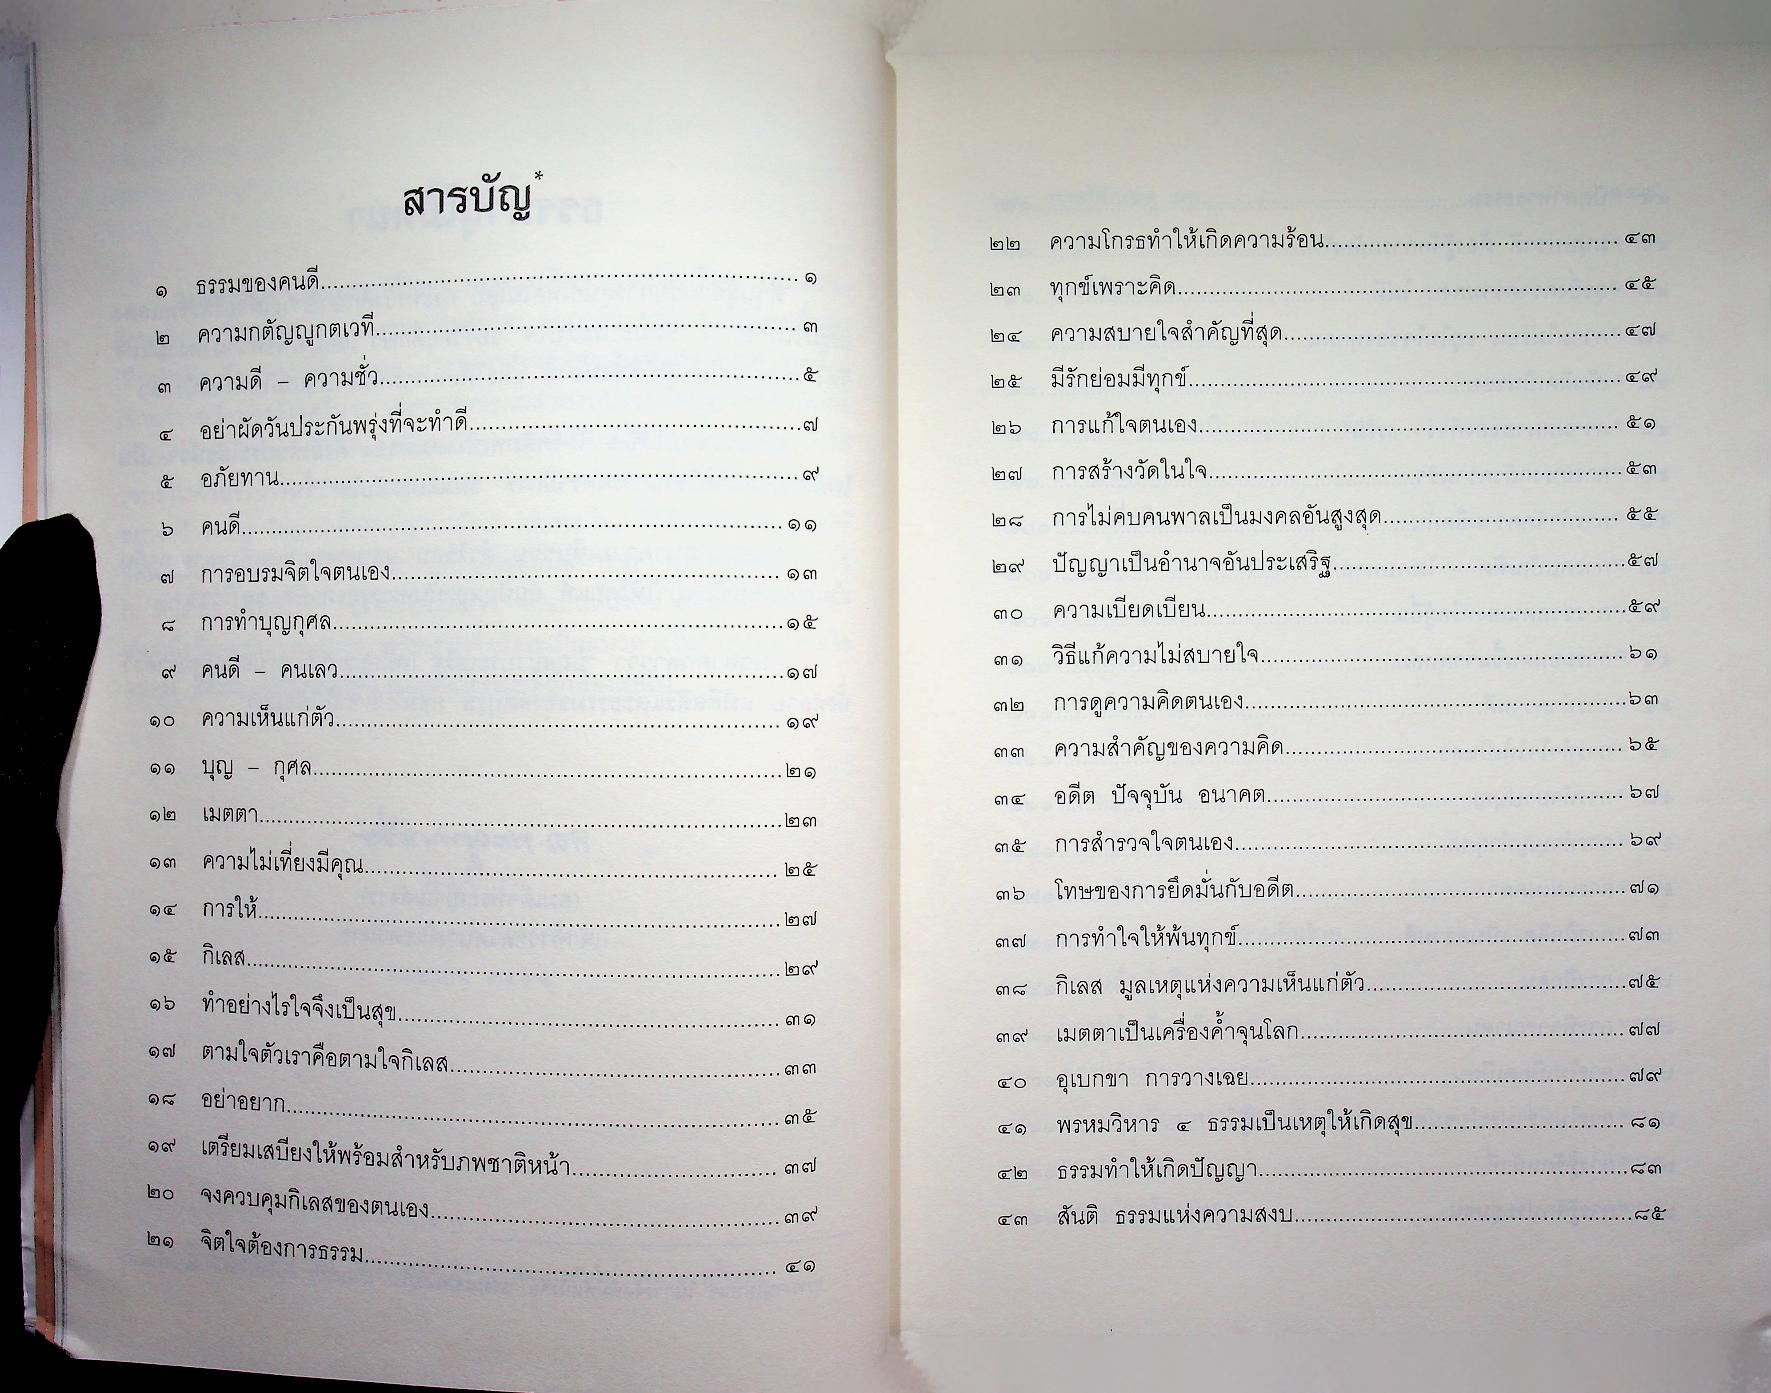 สารบัญ*
๑ ธรรมของคนดี ๑
๒ ความกตัญญูกตเวที ๓
๓ ความดี – ความชั่ว ๕
๔ อย่าผัดวันประกันพรุ่งที่จะทำดี ๗
๕ อภัยทาน ๙
๖ คนดี ๑๑
๗ การอบรมจิตใจตนเอง ๑๓
๘ การทำบุญกุศล ๑๕
๙ คนดี – คนเลว ๑๗
๑๐ ความเห็นแก่ตัว ๑๙
๑๑ บุญ – กุศล ๒๑
๑๒ เมตตา ๒๓
๑๓ ความไม่เที่ยงมีคุณ ๒๕
๑๔ การให้ ๒๗
๑๕ กิเลส ๒๙
๑๖ ทำอย่างไรใจจึงเป็นสุข ๓๑
๑๗ ตามใจตัวเราคือตามใจกิเลส ๓๓
๑๘ อย่าอยาก ๓๕
๑๙ เตรียมเสบียงให้พร้อมสำหรับภพชาติหน้า ๓๗
๒๐ จงควบคุมกิเลสของตนเอง ๓๙
๒๑ จิตใจต้องการธรรม ๔๑
๒๒ ความโกรธทำให้เกิดความร้อน ๔๓
๒๓ ทุกข์เพราะคิด ๔๕
๒๔ ความสบายใจสำคัญที่สุด ๔๗
๒๕ มีรักย่อมมีทุกข์ ๔๙
๒๖ การแก้ใจตนเอง ๕๑
๒๗ การสร้างวัดในใจ ๕๓
๒๘ การไม่คบคนพาลเป็นมงคลอันสูงสุด ๕๕
๒๙ ปัญญาเป็นอำนาจอันประเสริฐ ๕๗
๓๐ ความเบียดเบียน ๕๙
๓๑ วิธีแก้ความไม่สบายใจ ๖๑
๓๒ การดูความคิดตนเอง ๖๓
๓๓ ความสำคัญของความคิด ๖๕
๓๔ อดีต ปัจจุบัน อนาคต ๖๗
๓๕ การสำรวจใจตนเอง ๖๙
๓๖ โทษของการยึดมั่นกับอดีต ๗๑
๓๗ การทำใจให้พ้นทุกข์ ๗๓
๓๘ กิเลส มูลเหตุแห่งความเห็นแก่ตัว ๗๕
๓๙ เมตตาเป็นเครื่องค้ำจุนโลก ๗๗
๔๐ อุเบกขา การวางเฉย ๗๙
๔๑ พรหมวิหาร ๔ ธรรมเป็นเหตุให้เกิดสุข ๘๑
๔๒ ธรรมทำให้เกิดปัญญา ๘๓
๔๓ สันติ ธรรมแห่งความสงบ ๘๕